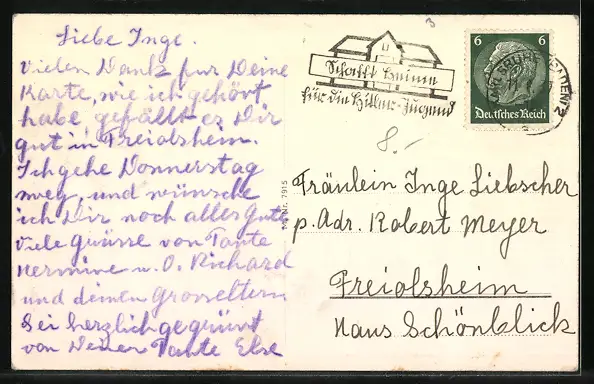 Liebe Inge.
Vielen Dank für Deine
Karte, wie ich gehört
habe gefällt es Dir
gut in Freiolsheim.
Ich gehe Donnerstag
weg, und wünsche
ich Dir noch alles Gute
Viele Grüsse von Tante
Hermine u. O. Richard
und deinen Grosseltern
Sei herzlich gegrüsst
von Deiner Tante Else
Schafft Heime
für die Hitler-Jugend
6 6
Deutsches Reich
8.-
Nr. 7915
Fräulein Inge Liebscher
p. Adr. Robert Meyer
Freiolsheim
Haus Schönblick